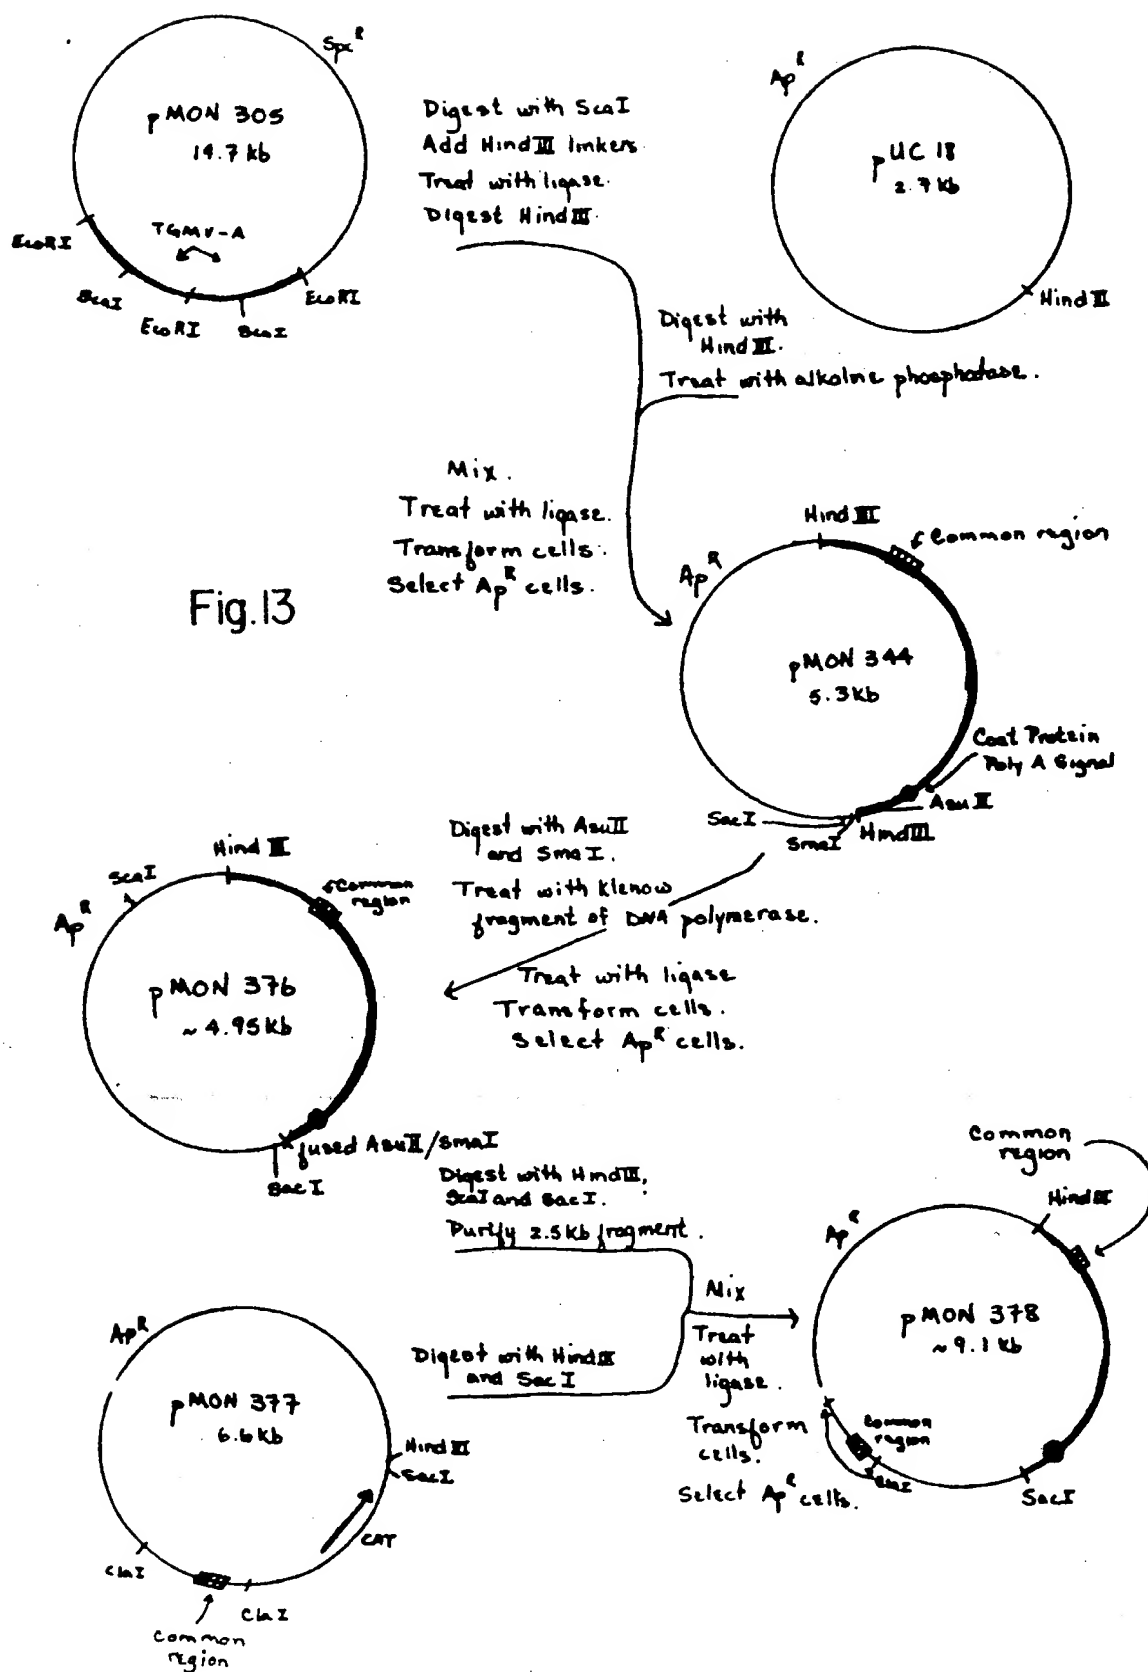 Spc R
pMON 305
14.7 kb
TGMV-A
EcoRI
ScaI
EcoRI
ScaI
EcoRI
Digest with ScaI
Add Hind III linkers.
Treat with ligase.
Digest Hind III.
Ap R
pUC 18
2.7 kb
Hind III
Digest with
Hind III.
Treat with alkaline phosphatase.
Mix.
Treat with ligase.
Transform cells.
Select Ap R cells.
Fig.13
Hind III
Common region
Ap R
pMON 344
5.3kb
Coat Protein
Poly A Signal
Asu II
Hind III
SmaI
SacI
Digest with AsuII
and SmaI.
Treat with Klenow
fragment of DNA polymerase.
Treat with ligase
Transform cells.
Select Ap R cells.
Hind III
ScaI
Common
region
Ap R
pMON 376
~ 4.95 Kb
fused AsuII/SmaI
SacI
Digest with HindIII,
ScaI and SacI.
Purify 2.5 kb fragment.
Ap R
pMON 377
6.6 Kb
Hind III
SacI
CAT
ClaI
ClaI
Common
region
Digest with Hind III
and SacI
Mix
Treat
with
ligase.
Transform
cells.
Select Ap R cells.
Common
region
Hind III
Ap R
pMON 378
~ 9.1 kb
Common
region
ClaI
SacI